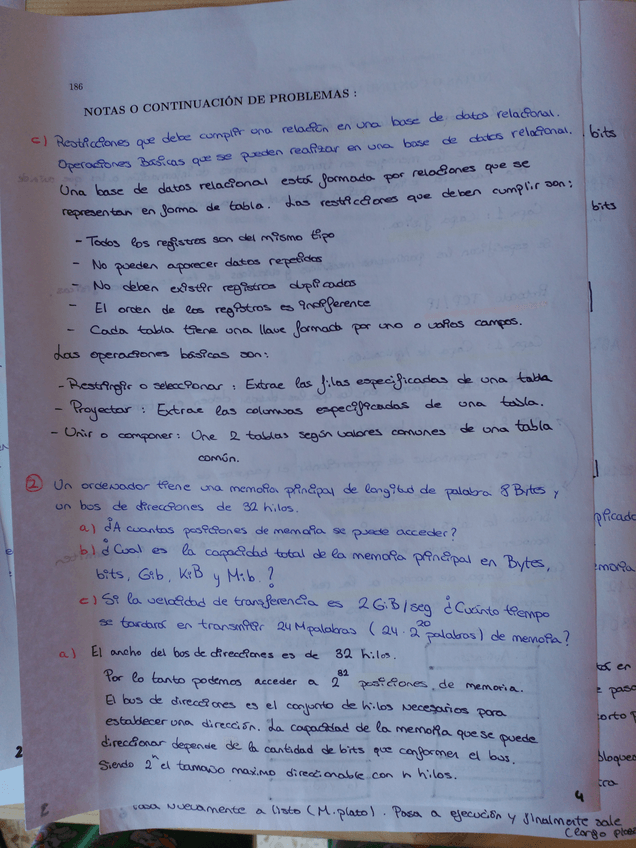 186
NOTAS O CONTINUACIÓN DE PROBLEMAS :
c) Resticciones que debe cumplir una relación en una base de datos relacional.
Operaciones Básicas que se pueden realizar en una base de datos relacional.
bits
Una base de datos relacional está formada por relaciones que se
representan en forma de tabla. Las resticciones que deben cumplir son:
bits
- Todos los registros son del mismo tipo
- No pueden aparecer datos repetidos
- No deben existir registros duplicados
- El orden de los registros es indiferente
- Cada tabla tiene una llave formada por uno o varios campos.
Las operaciones básicas son:
- Restringir o seleccionar : Extrae las filas especificadas de una tabla
- Proyectar : Extrae las columnas especificadas de una tabla.
- Unir o componer: Une 2 tablas según valores comunes de una tabla
común.
2 Un ordenador tiene una memoria principal de longitud de palabra 8 Bytes y
un bus de direcciones de 32 hilos.
a) ¿A cuantas posiciones de memoria se puede acceder?
b) ¿Cual es la capacidad total de la memoria principal en Bytes,
bits, Gib, KiB y Mib.?
c) Si la velocidad de transferencia es 2 GiB/seg ¿Cuánto tiempo
se tardará en transmitir 24 Mpalabras (24·2^20 palabras) de memoria?
a) El ancho del bus de direcciones es de 32 hilos.
Por lo tanto podemos acceder a 2^32 posiciones de memoria.
El bus de direcciones es el conjunto de hilos necesarios para
establecer una dirección. La capacidad de la memoria que se puede
direccionar depende de la cantidad de bits que conformen el bus.
Siendo 2^n el tamaño maximo direccionable con n hilos.
4
2
nuevamente a listo (M.plato). Pasa a ejecución y finalmente sale
(largo